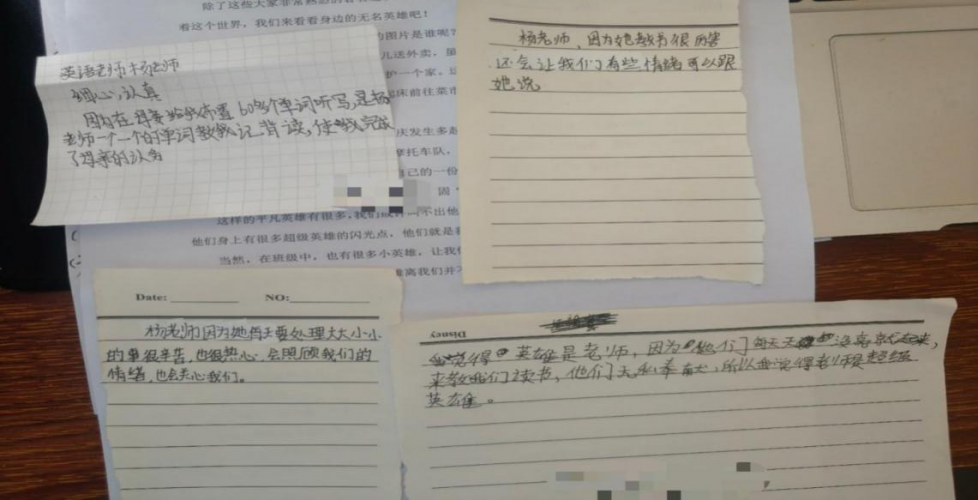 除了这些大家非常熟悉的
着这个世界，我们来看看身边的无名英雄吧！
的图片是谁呢？
儿送外卖，
护一个家。
床前往菜市
庆发生多起
摩托车队，
自己的一份
因
这样的平凡英雄有很多，我们或许叫不出他
他们身上有很多超级英雄的闪光点，他们就是
当然，在班级中，也有很多小英雄，让我们
离我们并不
英语老师杨老师
细心，认真
因为在母亲给我布置60多个单词听写，是杨
老师一个一个的单词教我记背读，使我完成
了母亲的任务
杨老师，因为她教书很厉害
还会让我们有些情绪可以跟
她说
Date: NO:
杨老师因为她每天要处理大大小小
的事很辛苦，也很热心，会照顾我们的
情绪，也会关心我们。
Disney
我觉得英雄是老师，因为他们每天天没亮就起来，
来教咱们读书，他们无私奉献，所以我觉得老师是超级
英雄。